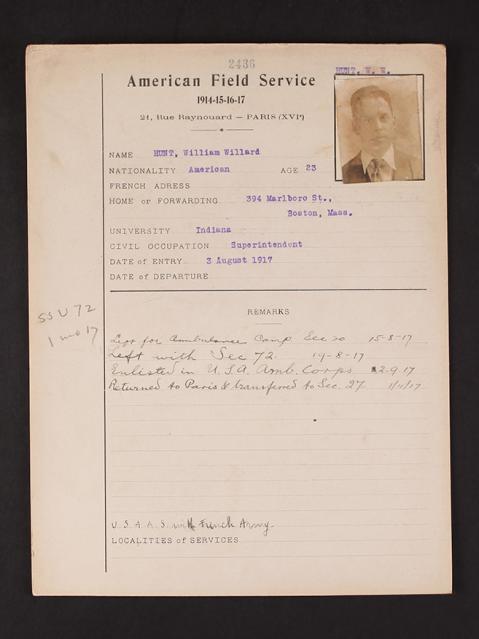 2436
HUNT, W. W.
American Field Service
1914-15-16-17
21, Rue Raynouard — PARIS (XVIe)
NAME HUNT, William Willard
NATIONALITY American AGE 23
FRENCH ADRESS
HOME or FORWARDING 394 Marlboro St.,
Boston, Mass.
UNIVERSITY Indiana
CIVIL OCCUPATION Superintendent
DATE of ENTRY 3 August 1917
DATE of DEPARTURE
SSU 72
1 mo 17
REMARKS
Left for Ambulance Camp Sec 20 15-8-17
Left with Sec 72. 19-8-17
Enlisted in U.S.A. Amb. Corps 2-9-17
Returned to Paris & transferred to Sec. 27. 1/11/17
U.S.A.A.S. with French Army
LOCALITIES of SERVICES